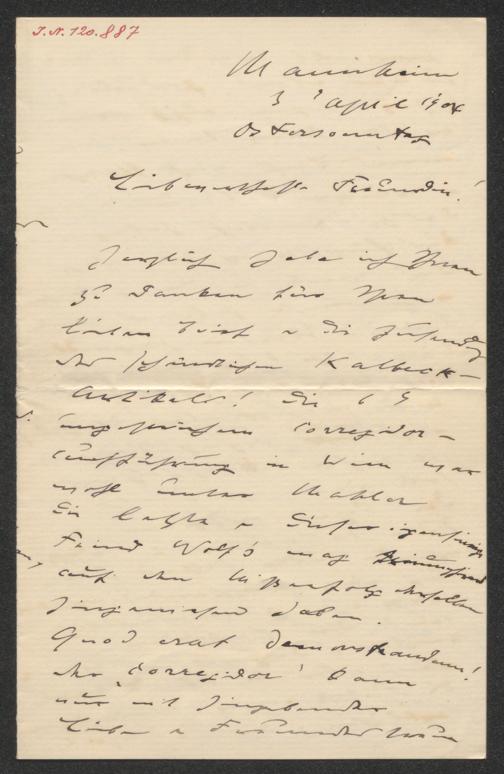 I.N. 120.887
Mannheim
3 April 1904
Ostersonntag
Liebenswerthe Freundin!
Herzlich habe ich Ihnen
zu danken für Ihren
lieben Brief u die Zusendg
des schändlichen Kalbeck-
Artikels! Die
Corregidor-
Aufführung in Wien war
wohl unter Mahler
die letzte u dieser
Feind Wolf's mag
auf den Misserfolg desselben
hingewiesen haben.
Quod erat demonstrandum!
Der "Corregidor" kann
nur mit hingebender
Liebe u